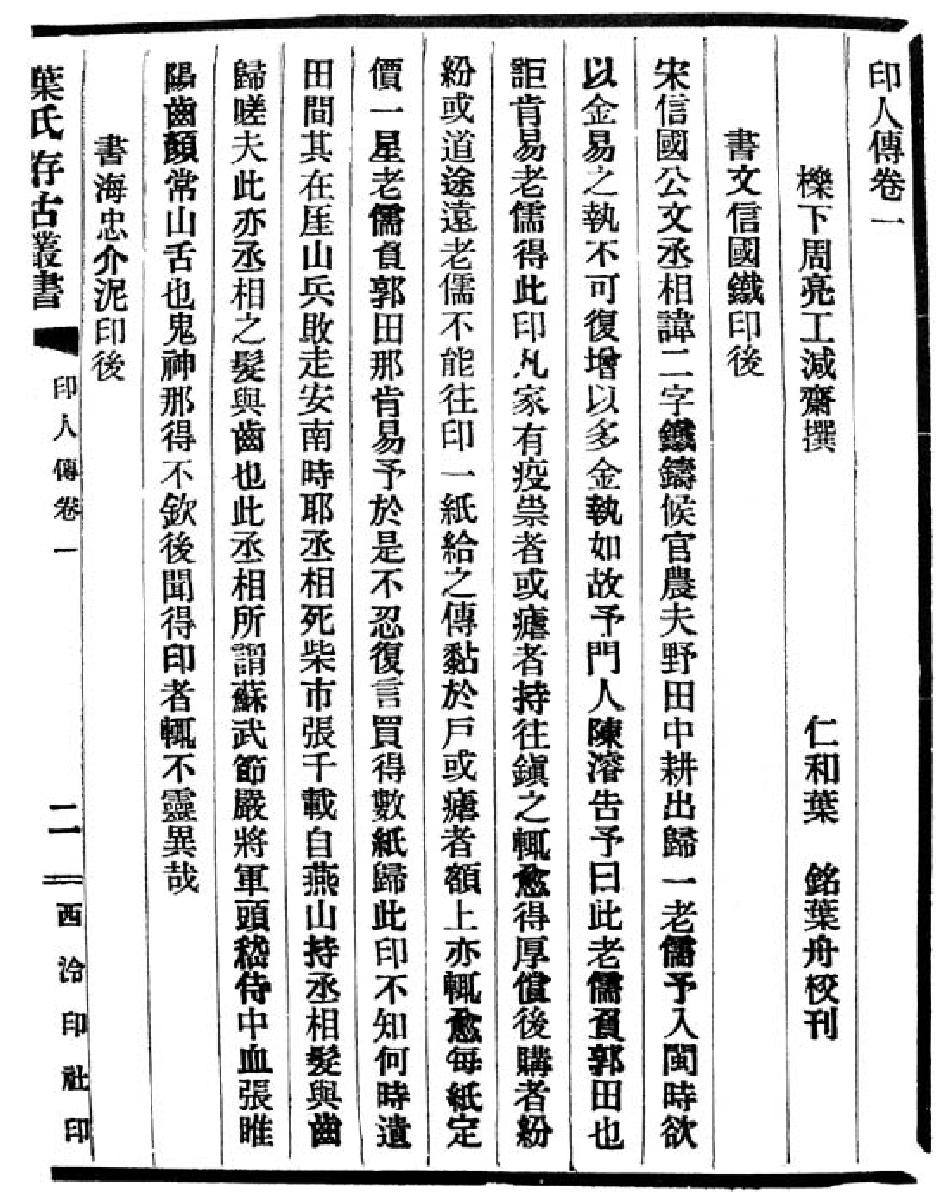 印人傳卷一
櫟下周亮工減齋撰　仁和葉　銘葉舟校刊
書文信國鐵印後
宋信國公文丞相諱二字鐵鑄候官農夫野田中耕出歸一老儒予入閩時欲
以金易之執不可復增以多金執如故予門人陳濬告予曰此老儒負郭田也
詎肯易老儒得此印凡家有疫祟者或瘧者持往鎭之輒愈得厚償後購者紛
紛或道途遠老儒不能往印一紙給之傳黏於戶或瘧者額上亦輒愈每紙定
價一星老儒負郭田那肯易予於是不忍復言買得數紙歸此印不知何時遺
田間其在厓山兵敗走安南時耶丞相死柴市張千載自燕山持丞相髮與齒
歸嗟夫此亦丞相之髮與齒也此丞相所謂蘇武節嚴將軍頭嵇侍中血張睢
陽齒顏常山舌也鬼神那得不欽後聞得印者輒不靈異哉
書海忠介泥印後
葉氏存古叢書　印人傳卷一　二　西泠印社印